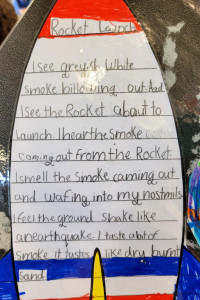 Rocket Launch
I see greyish White
smoke billowing out. And
I see the Rocket about to
launch. I hear the smoke
coming out from the Rocket
I smell the smoke caming out
and wafing into my nostrils
I feel the ground shake like
an earthquake. I taste a bit of
smoke. it tastes like dry burnt
sand.